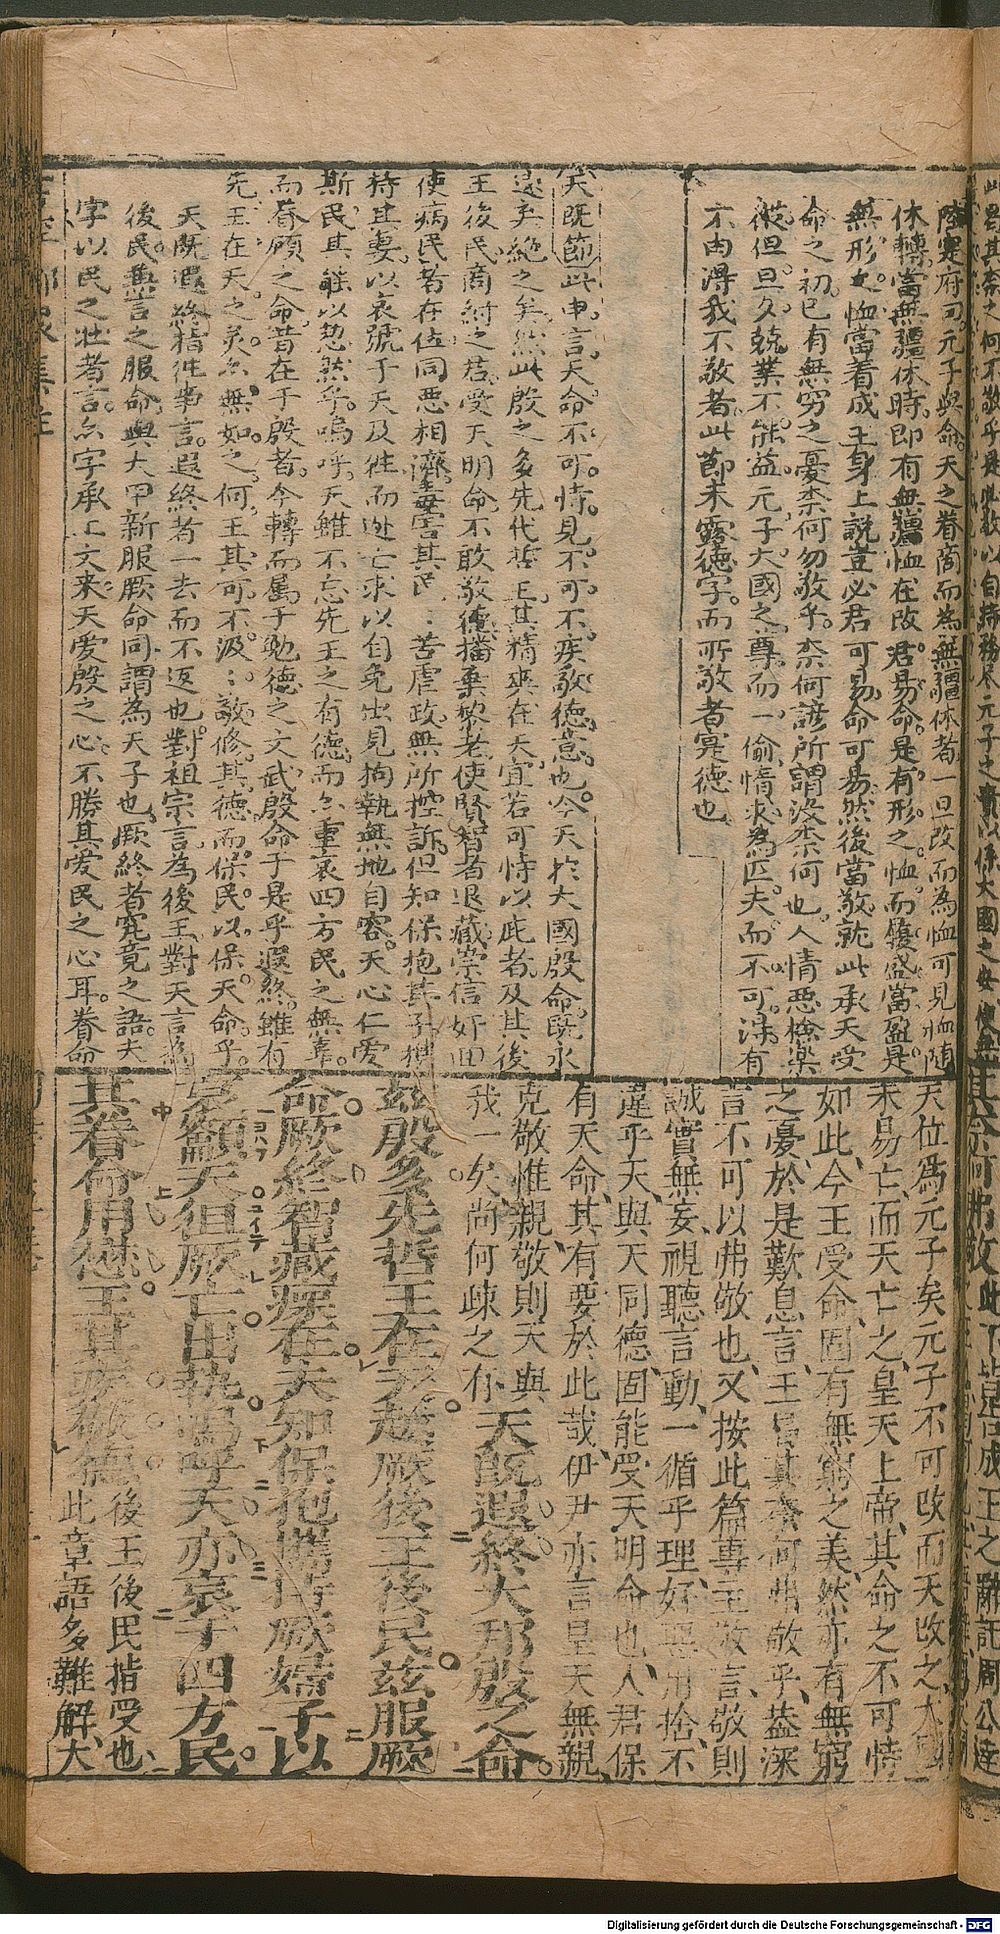 陸寔府可元子與命天之眷商而為無疆休者一旦改而為恤可見恤隨
休轉當無疆休時即有無疆恤在改君易命是有形之恤而釁盛當盈是
無形之恤當着成王身上說豈必君可易命可易然後當敬就此承天受
命之初已有無穷之憂柰何勿敬乎柰何諺所謂沒柰何也人情恶檢樂
從但旦夕兢業不能益元子大國之尊而一偷惰求為匹夫而不可得有
不由淂我不敬者此節未露德字而所敬者寔德也
天既節此申言天命不可恃見不可不疾敬德意也今天於大國殷命既永
遠矣絕之矣然此殷之多先代哲王其精爽在天宜若可恃以庇者及其後
王後民商紂之君受天明命不敢敬德播棄黎老使賢智者退藏崇信奸囬
使病民者在位同恶相濟毒害其民苦虐政無所控訴但知保抱其子携
持其妻以哀號于天及徃而逃亡求以自免出見拘執無地自容天心仁爱
斯民其能以恝然乎嗚呼天雖不忘先王之有德而亦重哀四方民之無辜
而眷顾之命昔在于殷者今轉而属于勉德之文武殷命于是乎遐終雖有
先王在天之灵亦無如之何王其可不汲〻敬修其德而保民以保天命乎
天既遐終指徃事言遐終者一去而不返也對祖宗言為後王對天言為
後民無言之服命與大甲新服厥命同謂為天子也厥終者究竟之語夫
字以民之壮者言亦字承上文来天爱殷之心不勝其爱民之心耳眷命
天位為元子矣元子不可改而天改之大國
未易亡而天亡之皇天上帝其命之不可恃
如此今王受命固有無窮之美然亦有無窮
之憂於是歎息言王曷其柰何弗敬乎蓋深
言不可以弗敬也又按此篇專主敬言敬則
誠實無妄視聽言動一循乎理好惡用捨不
違乎天與天同德固能受天明命也人君保
有天命其有要於此哉伊尹亦言皇天無親
克敬惟親敬則天與
我一矣尚何疎之有 天既遐終大邦殷之命
茲殷多先哲王在天越厥後王後民茲服厥
命厥終智藏瘝在夫知保抱攜持厥婦子以
哀籲天徂厥亡出執嗚呼天亦哀于四方民
其眷命用懋王其疾敬德 後王後民指受也
此章語多難解大
Digitalisierung gefördert durch die Deutsche Forschungsgemeinschaft - DFG